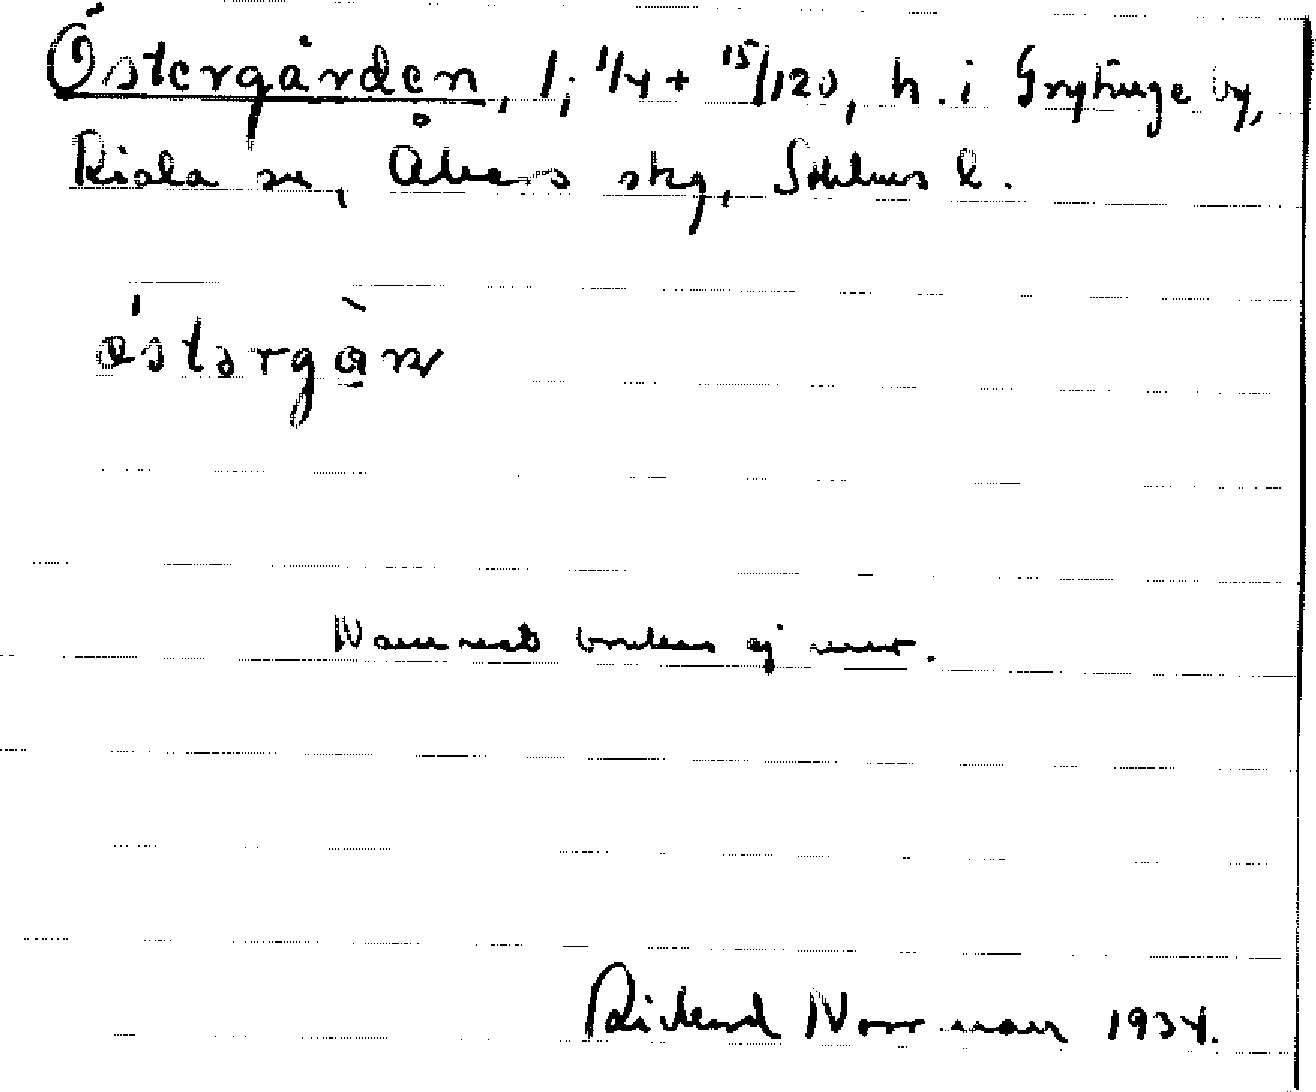 Östergården, 1; 1/4 + 15/120, h. i Grytinge by,
Riala sn, Åkers skg, Sthlms l.
Namnet brukas ej mer.
Rickard Norrman 1934.